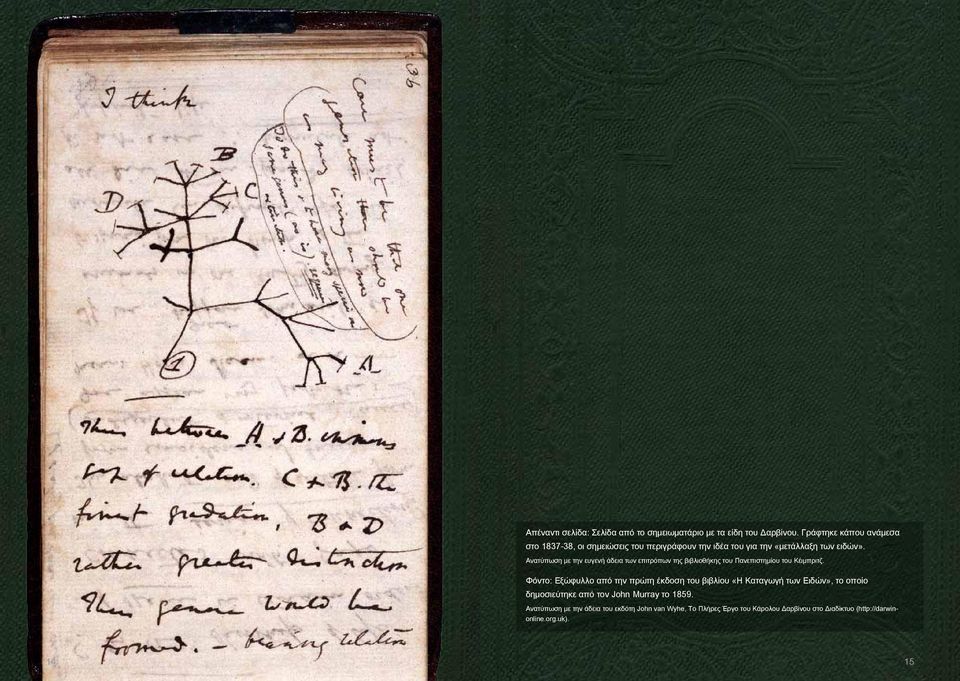 36
I think
Case must be that one
generation then should be
as many living as now
To do this & to have many species in
same genus (as is). requires
extinction.
B
C
D
A
1
Thus between A & B. immens
gap of relation. C & B. the
finest gradation, B & D
rather greater distinction
Thus genera would be
formed. — bearing relation
14
Απέναντι σελίδα: Σελίδα από το σημειωματάριο με τα είδη του Δαρβίνου. Γράφτηκε κάπου ανάμεσα
στο 1837-38, οι σημειώσεις του περιγράφουν την ιδέα του για την «μετάλλαξη των ειδών».
Ανατύπωση με την ευγενή άδεια των επιτρόπων της βιβλιοθήκης του Πανεπιστημίου του Κέιμπριτζ.
Φόντο: Εξώφυλλο από την πρώτη έκδοση του βιβλίου «Η Καταγωγή των Ειδών», το οποίο
δημοσιεύτηκε από τον John Murray το 1859.
Ανατύπωση με την άδεια του εκδότη John van Wyhe, Το Πλήρες Έργο του Κάρολου Δαρβίνου στο Διαδίκτυο (http://darwin-
online.org.uk).
15